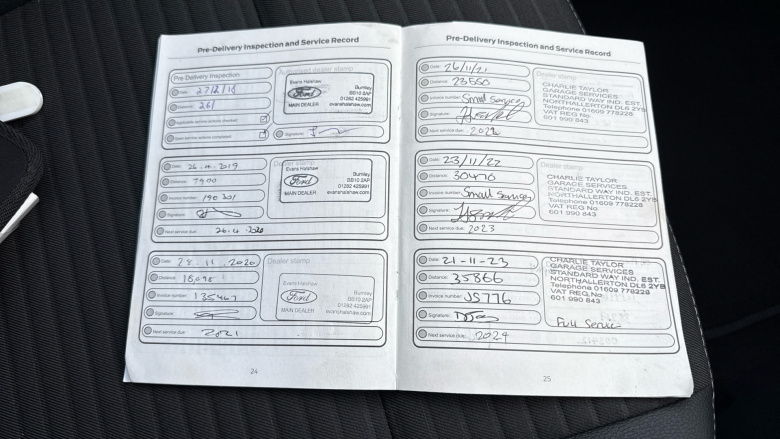 Pre-Delivery Inspection and Service Record
Pre Delivery Inspection
Date: 27/2/18
Distance: 26/
dealer stamp
Evans Halshaw
Ford
MAIN DEALER
Burnley
BB10 2AP
01282 425991
evanshalshaw.com
Signature:
Date: 26.4.2019
Distance: 7900
Invoice number: 190301
Signature:
Next service due: 26.4.2020
Dealer stamp
Evans Halshaw
Ford
MAIN DEALER
Burnley
BB10 2AP
01282 425991
evanshalshaw.com
Date: 28.11.2020
Distance:
Invoice number: 135467
Signature:
Next service due: 2021
Dealer stamp
Evans Halshaw
Ford
MAIN DEALER
Burnley
BB10 2AP
01282 425991
evanshalshaw.com
24
Pre-Delivery Inspection and Service Record
Date: 26/11/21
Distance: 23550
Invoice number: Small Service
Signature:
Next service due: 2022
CHARLIE TAYLOR
GARAGE SERVICES
STANDARD WAY IND. EST.
NORTHALLERTON DL6 2YB
Telephone 01609 778228
VAT REG No
601 990 843
Date: 23/11/22
Distance: 30476
Invoice number: Small Service
Signature:
Next service due: 2023
Dealer stamp
CHARLIE TAYLOR
GARAGE SERVICES
STANDARD WAY IND. EST.
NORTHALLERTON DL6 2YB
Telephone 01609 778228
VAT REG No
601 990 843
Date: 21-11-23
Distance: 35866
Invoice number: JS776
Signature:
Next service due: 2024
CHARLIE TAYLOR
GARAGE SERVICES
STANDARD WAY IND. EST.
NORTHALLERTON DL6 2YB
Telephone 01609 778228
VAT REG No
601 990 843
Full Service
25